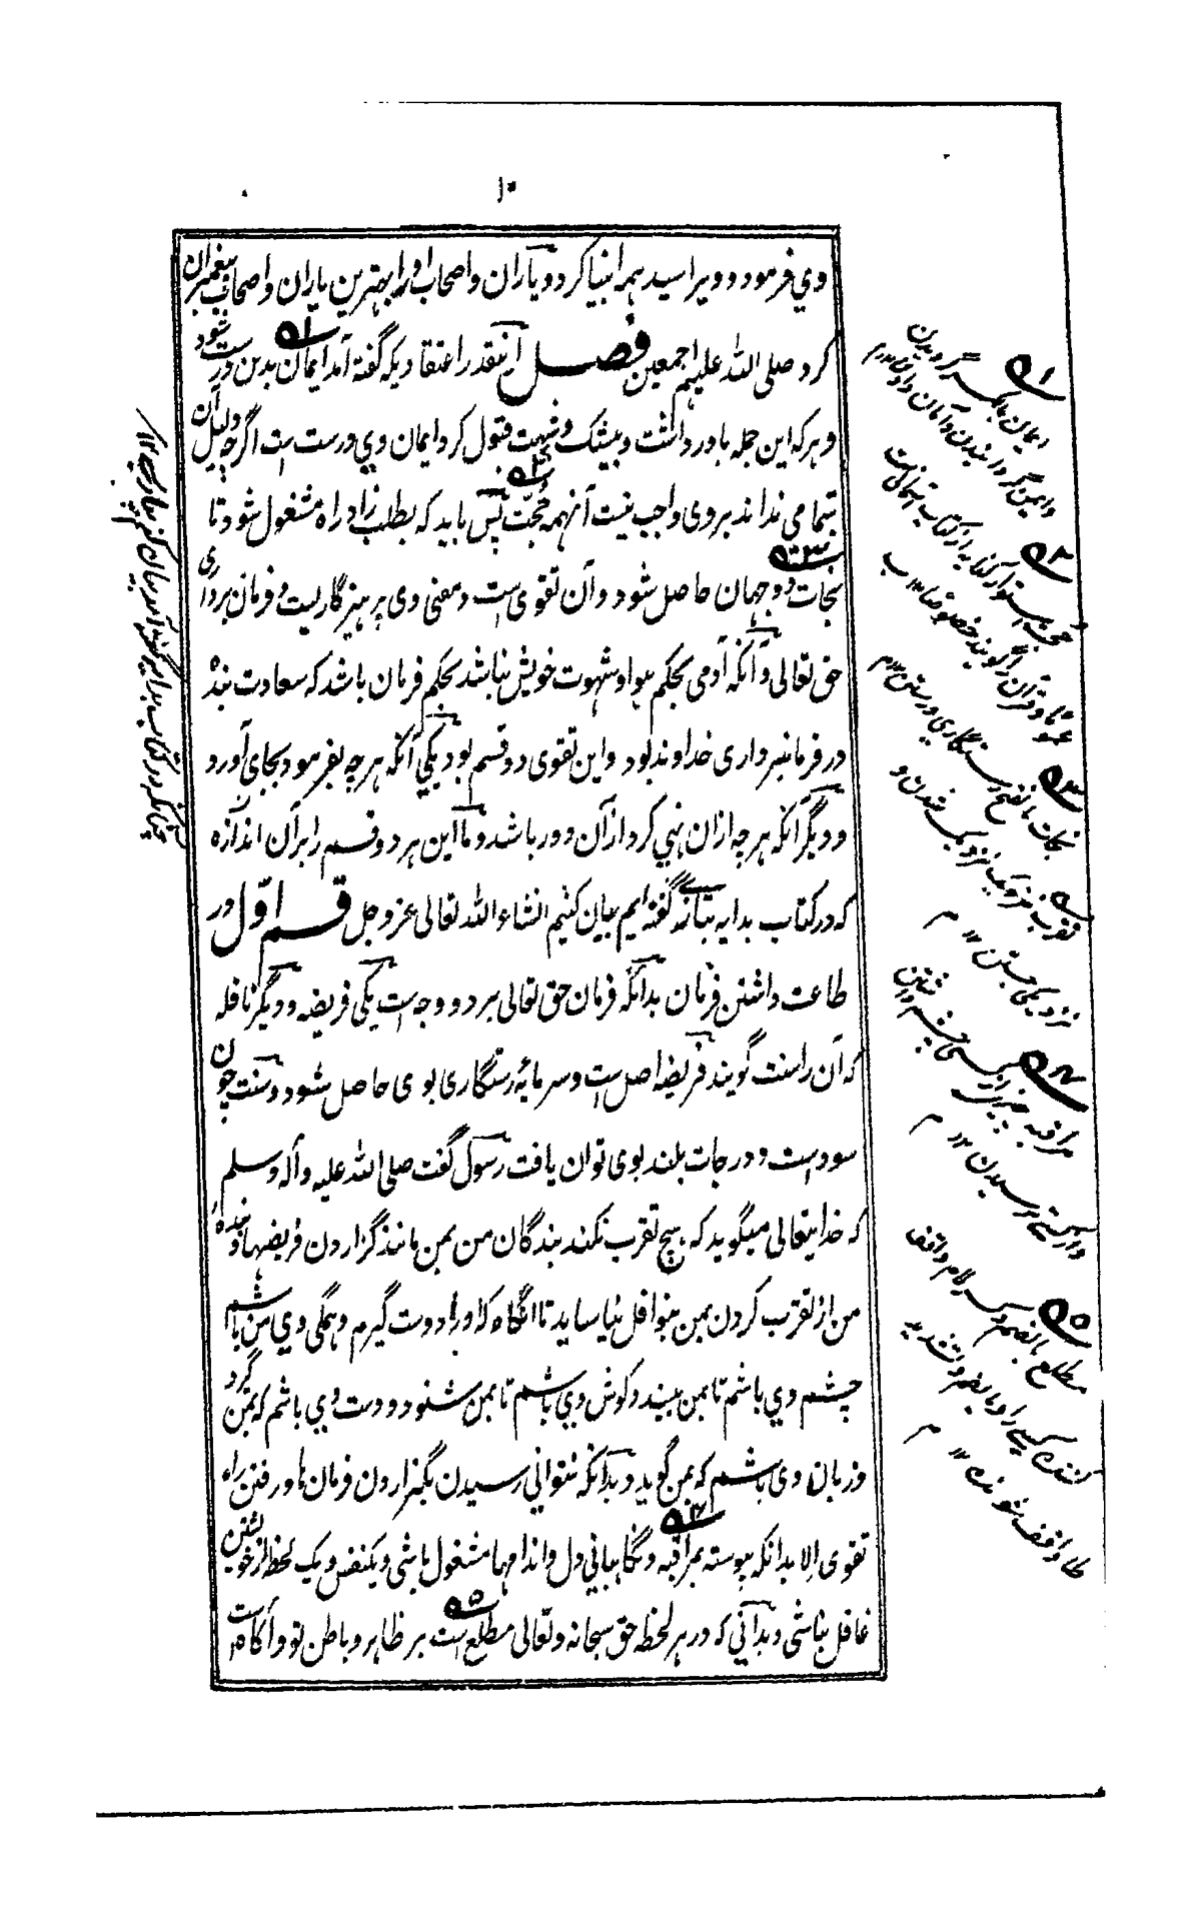 ۱۰
وي فرمود و ویرا سید همه انبیا کرد و یاران و اصحاب او را بهترین یاران و اصحاب پیغمبران
کرد صلی الله علیهم اجمعین فصل اینقدر اعتقاد یکه گفته آمد ایمان بدین درست شود
و هر که این جمله باور داشت و بیشک و شبهت قبول کرد ایمان وي درست است اگر چه دلیل آن
بتمامي نداند بروی واجب نیست آنهمه حجت پس باید که بطلب زاد راه مشغول شود تا
نجات دو جهان حاصل شود و آن تقوی است و معنی وی پرهیزگاریست و فرمان برداری
حق تعالی و آنکه آدمی بحکم هوا و شهوت خویش نباشد بحکم فرمان باشد که سعادت بنده
در فرمانبرداری خداوند بود و این تقوی دو قسم بود یکي آنکه هر چه بفرمود بجای آورد
و دیگر آنکه هر چه ازان نهي کرد از آن دور باشد و ما این هر دو قسم را بر آن اندازه
که در کتاب بدایه بتازه گفته ایم بیان کنیم انشاء الله تعالی عز و جل قسم اوّل در
طاعت داشتن فرمان بدانکه فرمان حق تعالی بر دو وجه است یکی فریضه و دیگر نافله
که آن را سنت گویند فریضه اصل است و سرمایهٔ رستگاری بوی حاصل شود و سنت چون
سود است و درجات بلند بوی توان یافت رسول گفت صلی الله علیه و آله و سلم
که خدایتعالی میگوید که هیچ تقرب نکند بندگان من بمن مانند گزاردن فریضها و بنده
من از تقرب کردن بمن بنوافل نیاساید تا آنگاه که او را دوست گیرم و همگی وي من باشم
چشم وي باشم تا بمن بیند و گوش وي باشم تا بمن شنود و دست وي باشم که بمن گیرد
و زبان وی باشم که بمن گوید و بدانکه نتواني رسیدن بگزاردن فرمان ها و رفتن راه
تقوی الا بدانکه پیوسته بمراقبه و نگاهباني دل و اندامها مشغول باشی و یکنفس و یک لحظه از خویشتن
غافل نباشی و بدانی که در هر لحظه حق سبحانه و تعالی مطلع است بر ظاهر و باطن تو و آگاه است
۱
ایمان بالکسر گرویدن
و ایمن گردانیدن و امان دادن ۱۲ م
۲
۳
نجات بالفتح رستگاري و رستن ۱۲ م
تقرب
نزدیکی جستن ۱۲ م
۴
مراقبه چیزی را چشم داشتن
و از کسی ترسیدن ۱۲ م
۵
مطلع بالضم و کسر لام واقف